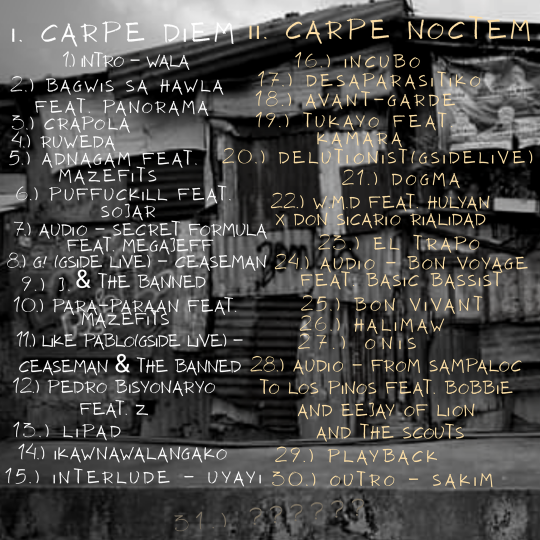 I. CARPE DIEM
1.) INTRO - WALA
2.) BAGWIS SA HAWLA
FEAT. PANORAMA
3.) CRAPOLA
4.) RUWEDA
5.) ADNAGAM FEAT.
MAZEFITS
6.) PUFFUCKILL FEAT.
SOJAR
7.) AUDIO - SECRET FORMULA
FEAT. MEGAJEFF
8.) G! (GSIDE LIVE) - CEASEMAN
9.) J & THE BANNED
10.) PARA-PARAAN FEAT.
MAZEFITS
11.) LIKE PABLO(GSIDE LIVE) -
CEASEMAN & THE BANNED
12.) PEDRO BISYONARYO
FEAT. Z
13.) LIPAD
14.) IKAWNAWALANGAKO
15.) INTERLUDE - UYAYI
II. CARPE NOCTEM
16.) INCUBO
17.) DESAPARASITIKO
18.) AVANT-GARDE
19.) TUKAYO FEAT.
KAMARA
20.) DELUTIONIST(GSIDELIVE)
21.) DOGMA
22.) W.M.D FEAT. HULYAN
X DON SICARIO RIALIDAD
23.) EL TRAPO
24.) AUDIO - BON VOYAGE
FEAT. BASIC BASSIST
25.) BON VIVANT
26.) HALIMAW
27.) ONIS
28.) AUDIO - FROM SAMPALOC
TO LOS PINOS FEAT. BOBBIE
AND EEJAY OF LION
AND THE SCOUTS
29.) PLAYBACK
30.) OUTRO - SAKIM
31.) ???????